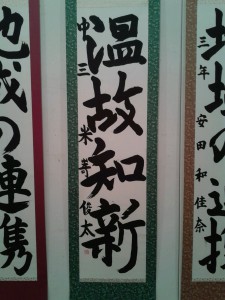 地域の連携
三年 安田和佳奈
温故知新
中三 米 俊太
地域の連携